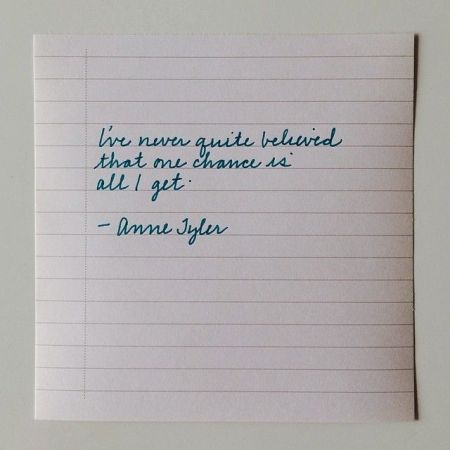 I've never quite believed
that one chance is
all I get.
- Anne Tyler